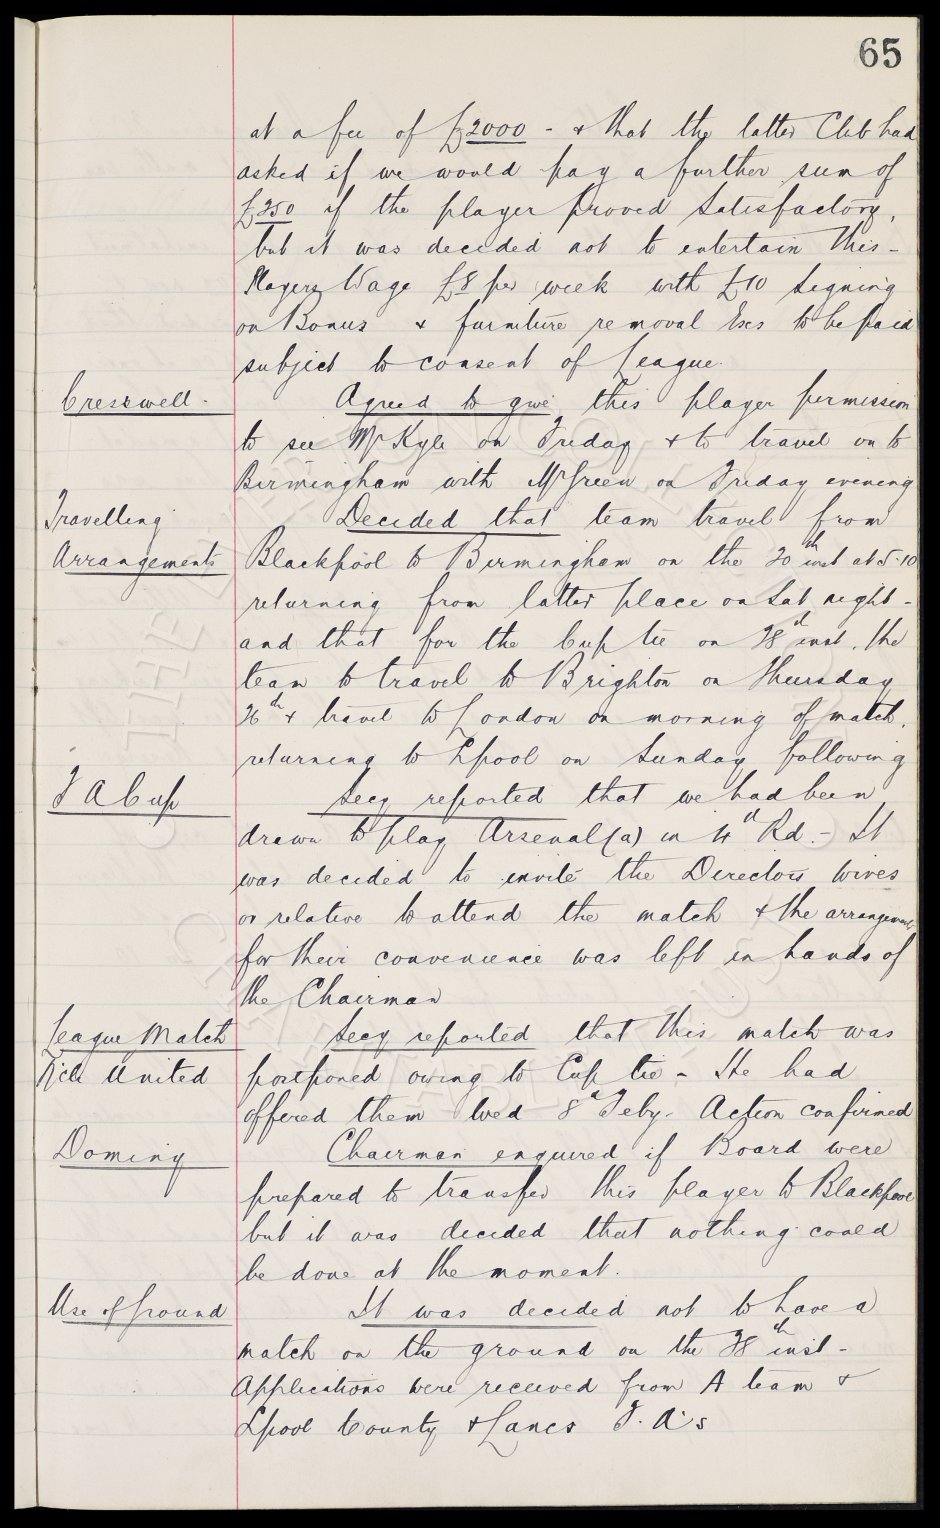 65
at a fee of £2000 - & that the latter Club had
asked if we would pay a further sum of
£250 if the player proved satisfactory,
but it was decided not to entertain this -
Players Wage £8 per week with £10 signing
on Bonus & furniture removal Exs to be paid
subject to consent of League.
Cresswell. Agreed to give this player permission
to see Mr Kyle on Friday & to travel on to
Birmingham with Mr Green on Friday evening
Travelling Decided that team travel from
Arrangements Blackpool to Birmingham on the 20th inst at 5-10
returning from latter place on Sat night -
and that for the Cup tie on 28th inst. the
team to travel to Brighton on Thursday
26th & travel to London on morning of match.
returning to Lpool on Sunday following
F A Cup Secy reported that we had been
drawn to play Arsenal (a) in 4th Rd. - It
was decided to invite the Directors wives
or relative to attend the match & the arrangements
for their convenience was left in hands of
the Chairman
League Match Secy reported that this match was
N'cle United postponed owing to Cup tie - He had
offered them Wed 8th Feby. Action confirmed
Dominy Chairman enquired if Board were
prepared to transfer this player to Blackpool
but it was decided that nothing could
be done at the moment.
Use of Ground It was decided not to have a
match on the ground on the 28th inst -
Applications were received from A team &
Lpool County & Lancs F.A's